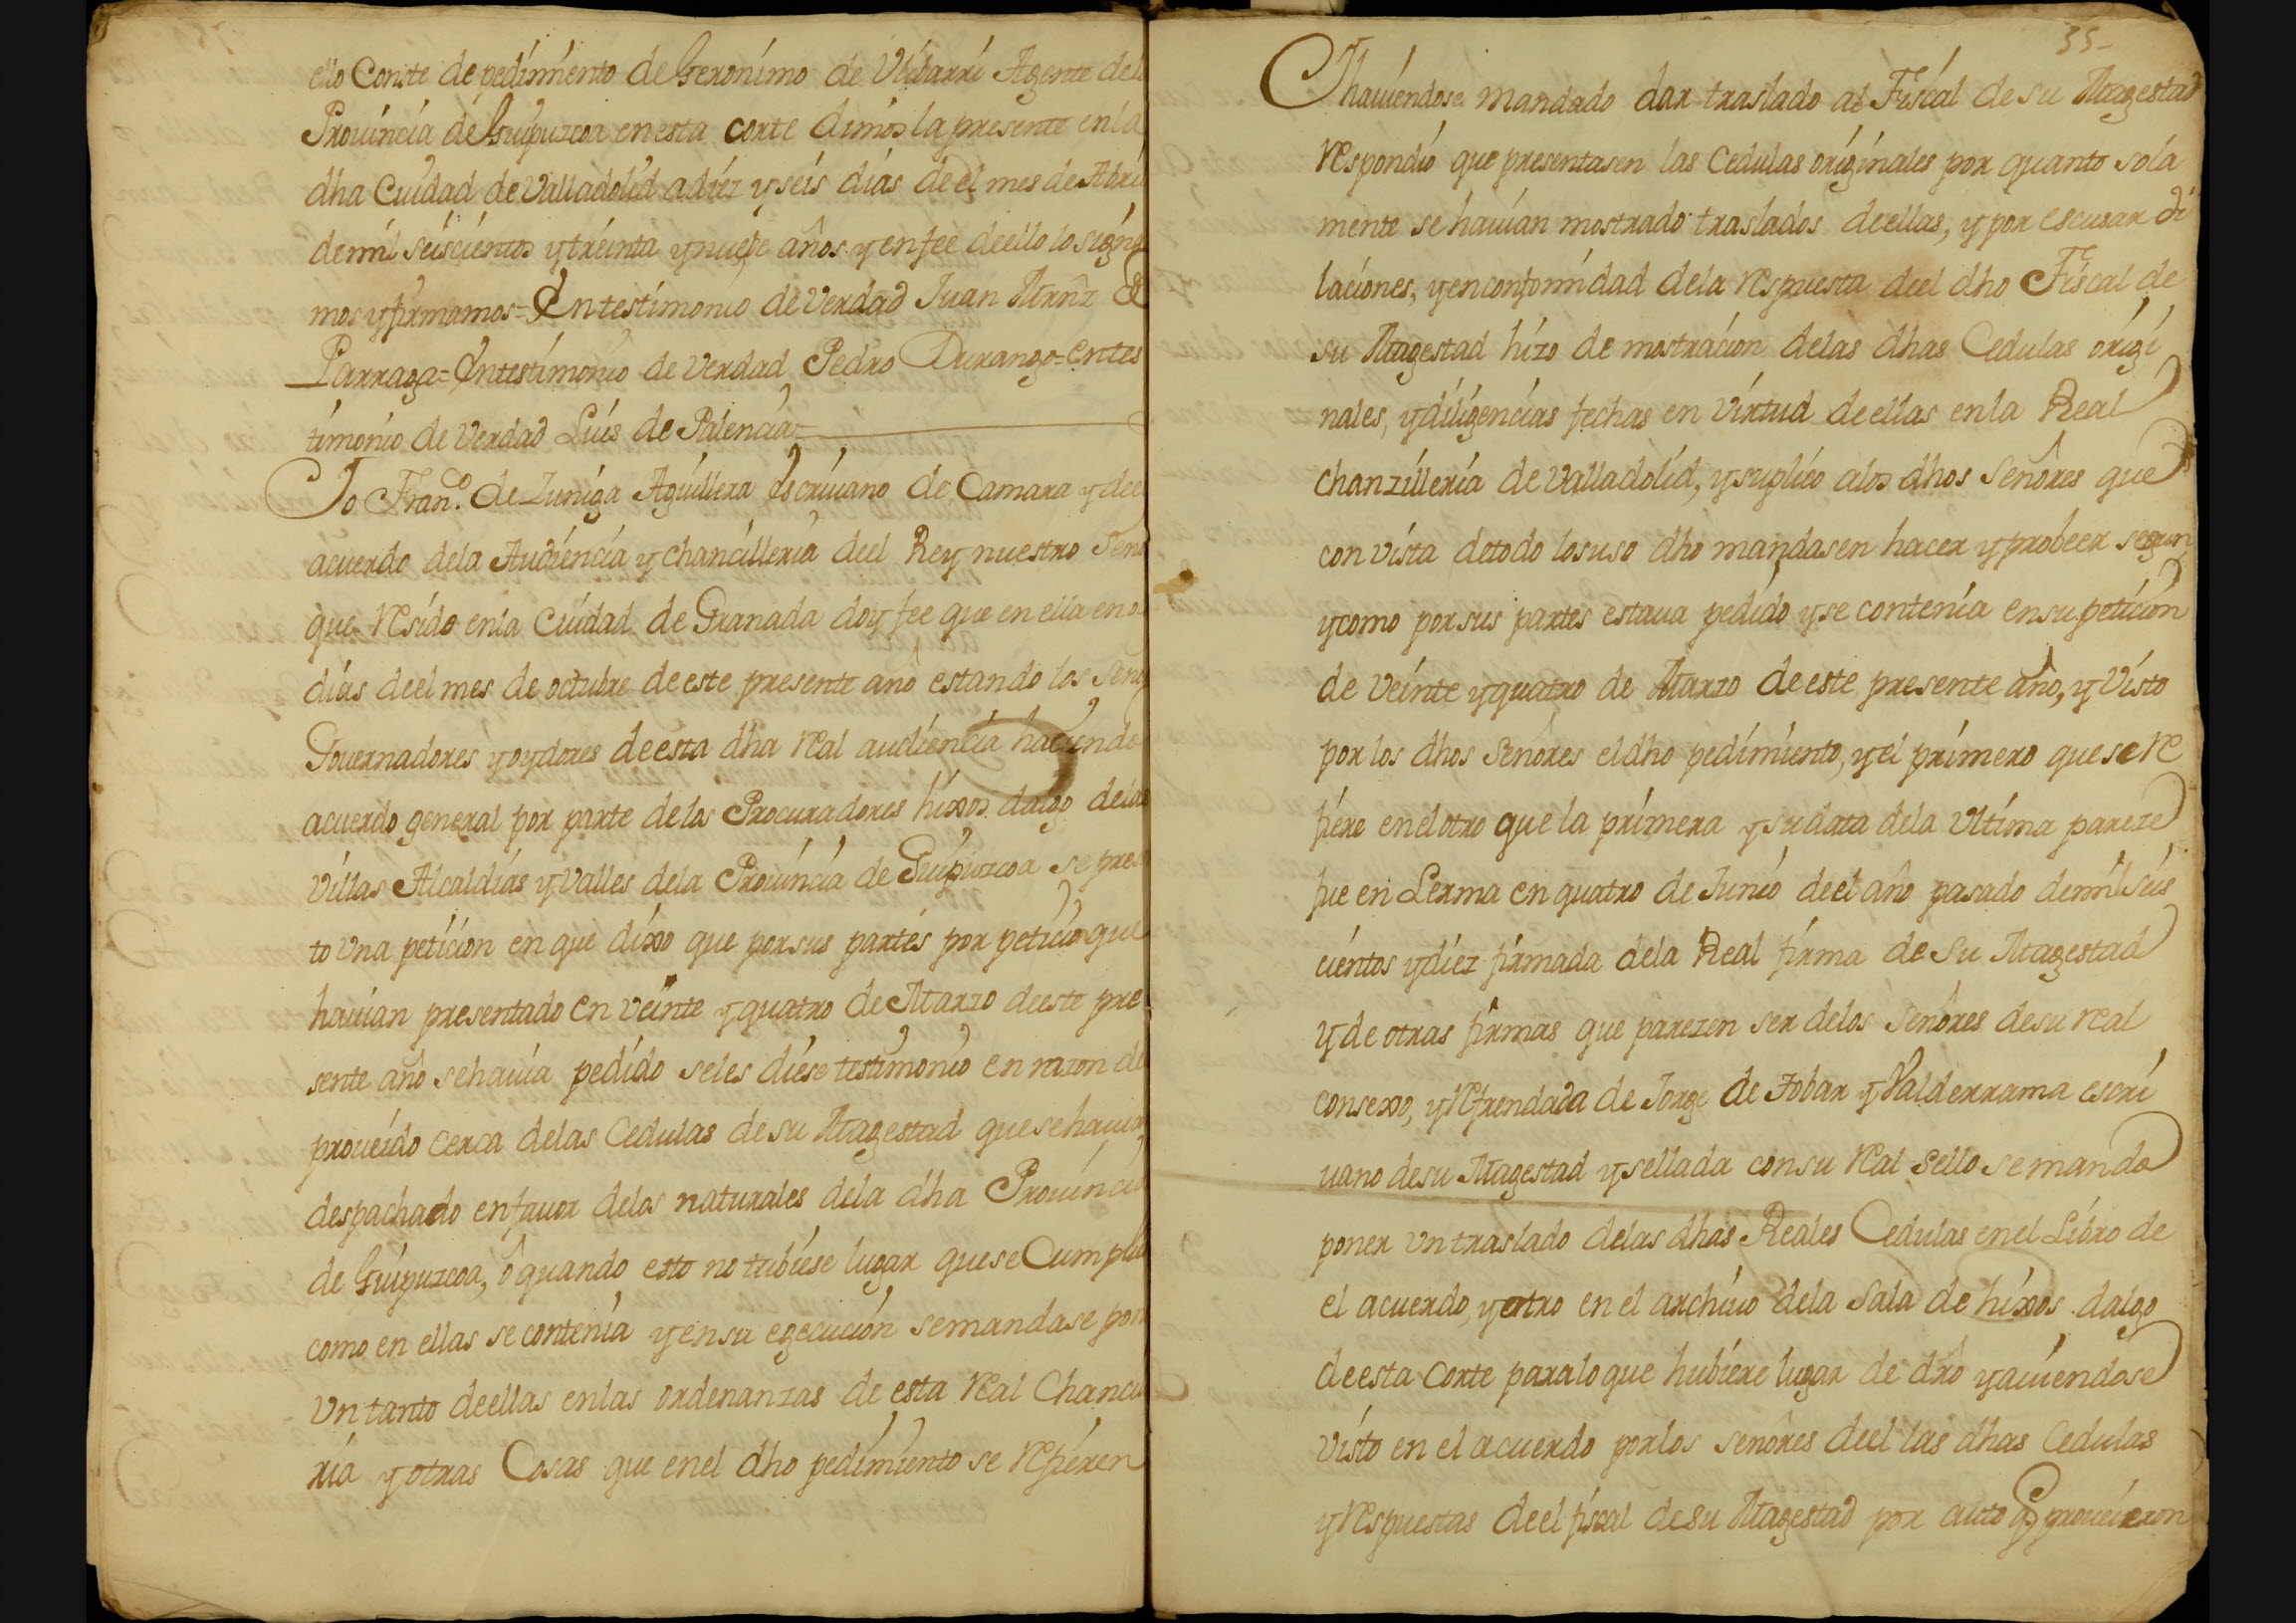 ello Conste de pedimiento de Geronimo de Vlibarri Agente dela
Prouincia de Guipuzcoa en esta corte dimos la presente en la
dha Ciudad de Valladolid a diez y seis dias de el mes de Abril
de mil seiscientos y treinta y nuebe años y en fee de ello lo signa
mos y firmamos = En testimonio de Verdad Juan Mrnz de
Parraga = En testimonio de Verdad Pedro Durango = en tes
timonio de Verdad Luis de Palencia =
Yo Fran.co de Zuniga Aguillera escriuano de Camara y de el
acuerdo dela Audiencia y chancilleria de el Rey nuestro Seno
que Reside en la Ciudad de Granada doy fee que en ella en o
dias de el mes de octubre de este presente año estando los Seno
Gouernadores y oydores de esta dha Real audiencia haciendo
acuerdo general por parte de los Procuradores hixos dalgo delas
Villas Alcaldias y Valles dela Prouincia de Guipuzcoa se pres
to Vna peticion en que dixo que por sus partes por peticio que
hauian presentado en veinte y quatro de Marzo de este pre
sente año se hauia pedido se les diese testimonio en razon de
proueido cerca delas Cedulas de su Magestad que se hauian
despachado en fauor delos naturales dela dha Prouincia
de Guipuzcoa, ô quando esto no tubiese lugar que se Cumplie
como en ellas se contenia y en su egecucion se mandase pon
Vn tanto de ellas en las ordenanzas de esta Real Chanci
ria y otras Cosas que en el dho pedimiento se Refieren
35
Y hauiendose mandado dar traslado al Fiscal de su Magestad
Respondio que presentasen las Cedulas originales por quanto sola
mente se hauian mostrado traslados de ellas, y por escusar di
laciones, y en conformidad dela Respuesta de el dho Fiscal de
su Magestad hizo demostracion delas dhas Cedulas origi
nales, y diligencias fechas en Virtud de ellas en la Real
chanzilleria de Valladolid, y suplico alos dhos Señores que
con vista de todo lo suso dho mandasen hacer y probeer segun
y como por sus partes estaua pedido y se contenia en su peticion
de Veinte y quatro de Marzo de este presente año, y Visto
por los dhos Señores el dho pedimiento, y el primero que se Re
fiere en el otro que la primera y su data dela Vltima pareze
fue en Lerma en quatro de Junio de el año pasado de mil seis
cientos y diez firmada dela Real firma de Su Magestad
y de otras firmas que parezen ser delos Señores de su Real
consexo, y Refrendada de Jorge de Tobar y Valderrama escri
uano de su Magestad y sellada con su Real sello se mando
poner Vn traslado delas dhas Reales Cedulas en el Libro de
el acuerdo, y otro en el archiuo dela Sala de hixos dalgo
de esta Corte para lo que hubiere lugar de dro y auiendose
Visto en el acuerdo por los señores de el las dhas Cedulas
y Respuestas de el fiscal de su Magestad por auto q proueieron